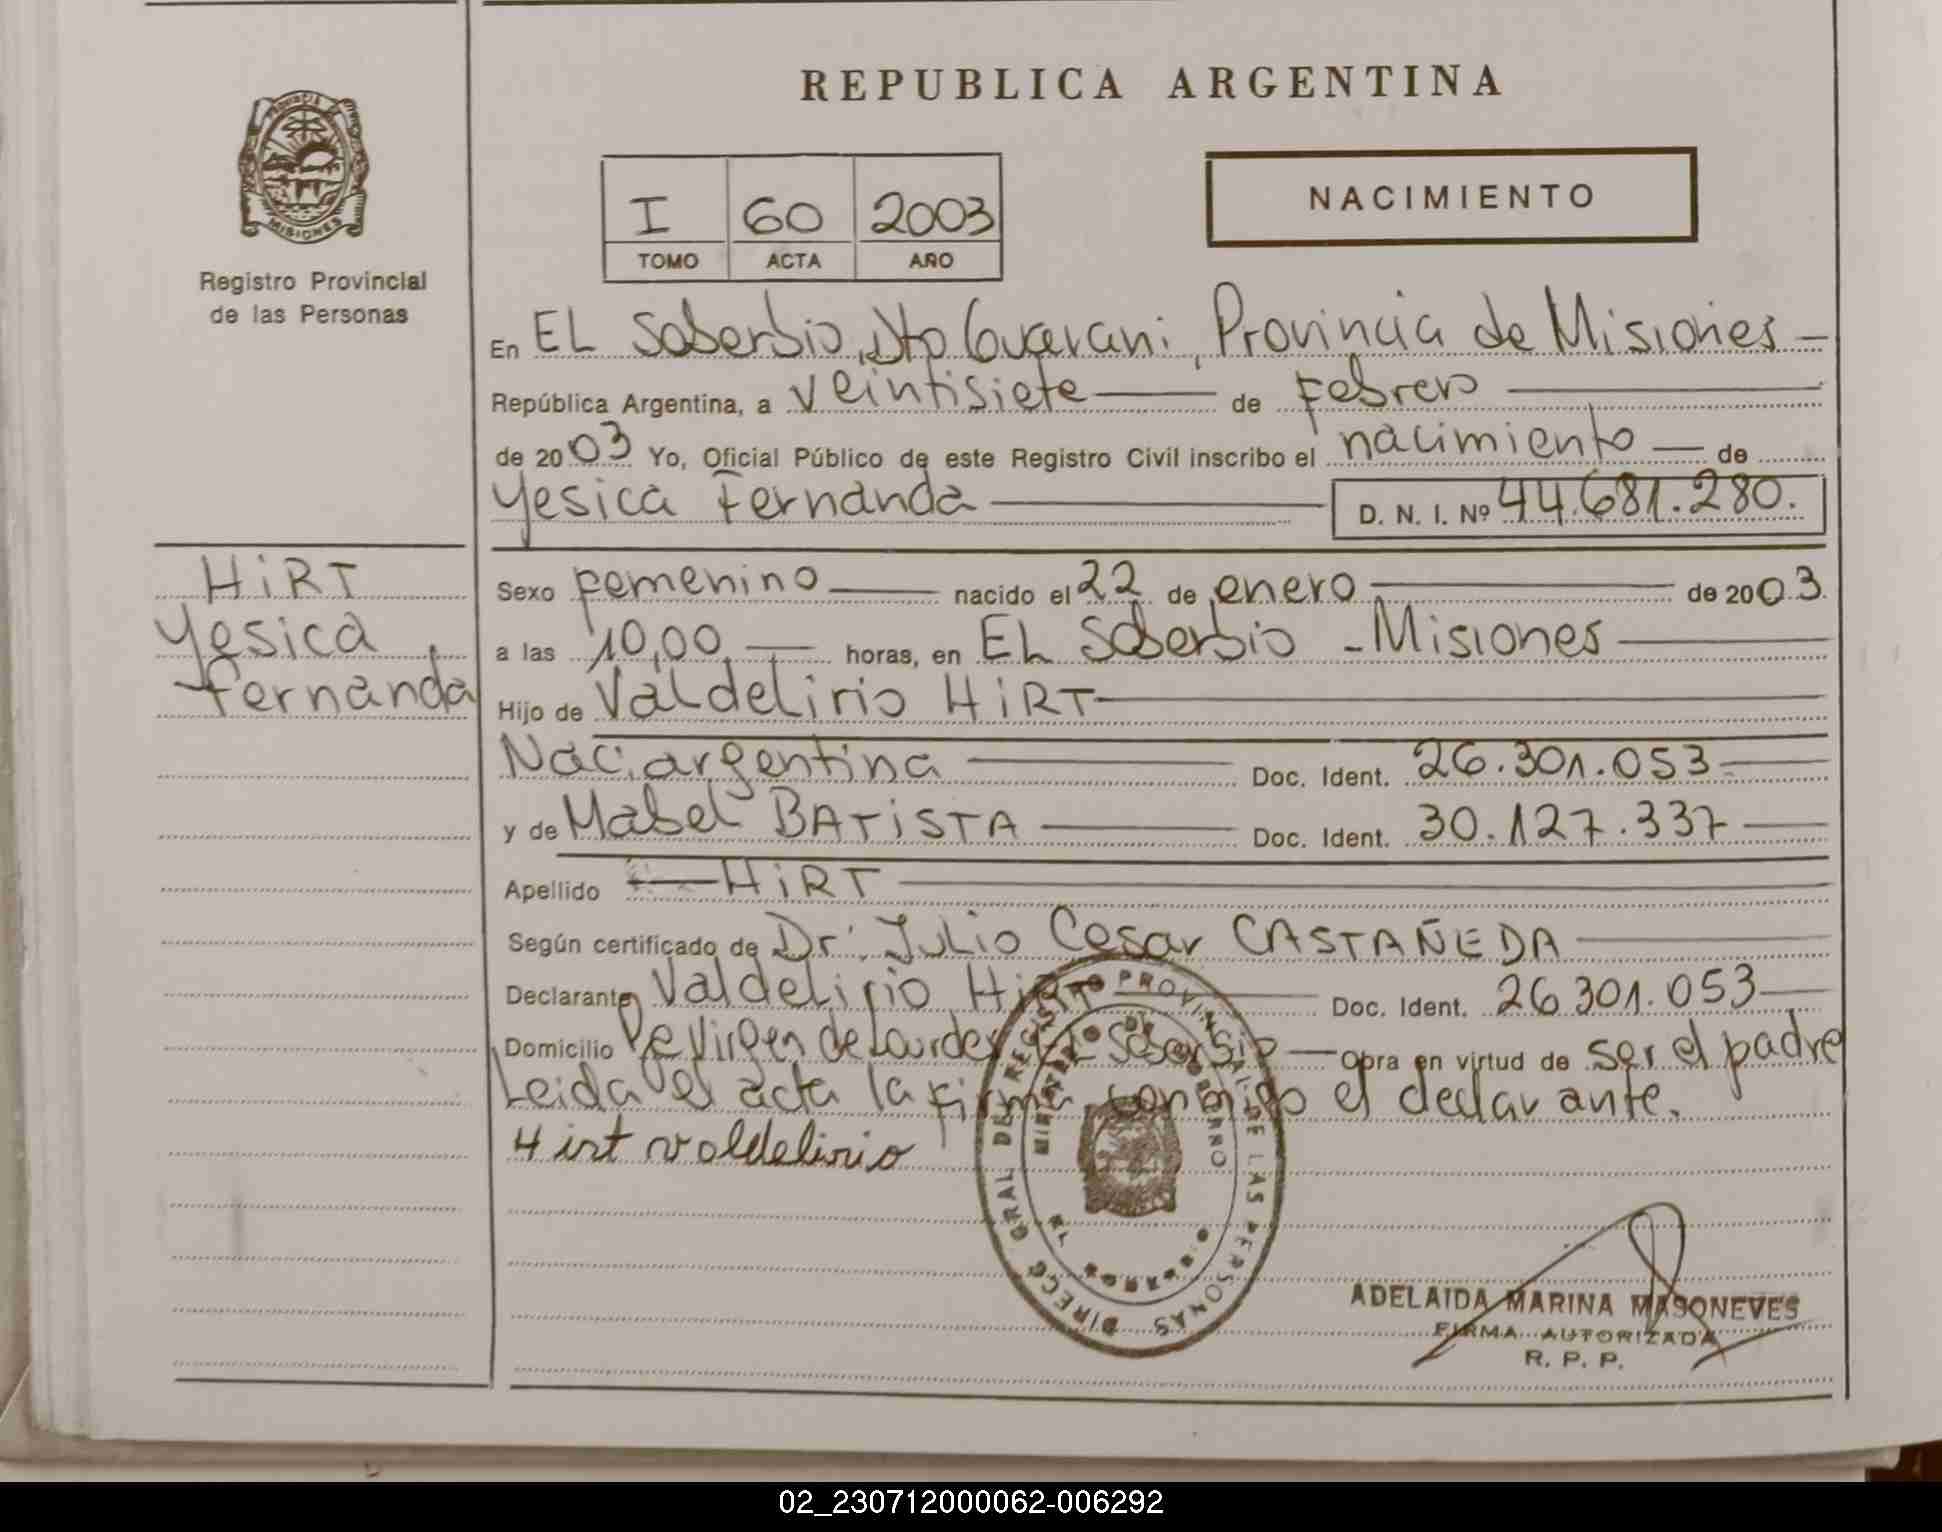 REPUBLICA ARGENTINA
PROVINCIA DE
MISIONES
Registro Provincial
de las Personas
I 60 2003
TOMO ACTA AÑO
NACIMIENTO
En EL Soberbio, Dto Guarani, Provincia de Misiones
República Argentina, a veintisiete de Febrero
de 2003 Yo, Oficial Público de este Registro Civil inscribo el nacimiento de
Yesica Fernanda D. N. I. Nº 44.681.280.
HiRT
Yesica
Fernanda
Sexo Femenino nacido el 22 de enero de 2003.
a las 10,00 horas, en EL Soberbio - Misiones
Hijo de Valdelirio HiRT
Nac. argentina Doc. Ident. 26.301.053
y de Mabel BATiSTA Doc. Ident. 30.127.337
Apellido HiRT
Según certificado de Dr. Julio Cesar CASTAÑEDA
Declarante Valdelirio Hirt Doc. Ident. 26.301.053
Domicilio Virgen de Lourdes El Soberbio obra en virtud de ser el padre
Leida el acta la firma conmigo el declarante.
Hirt valdelirio
DIRECC GRAL DE REGISTRO PROVINCIAL DE LAS PERSONAS
MINISTERIO DE GOBIERNO
ADELAIDA MARINA MASONEVES
FIRMA AUTORIZADA
R. P. P.
02_230712000062-006292